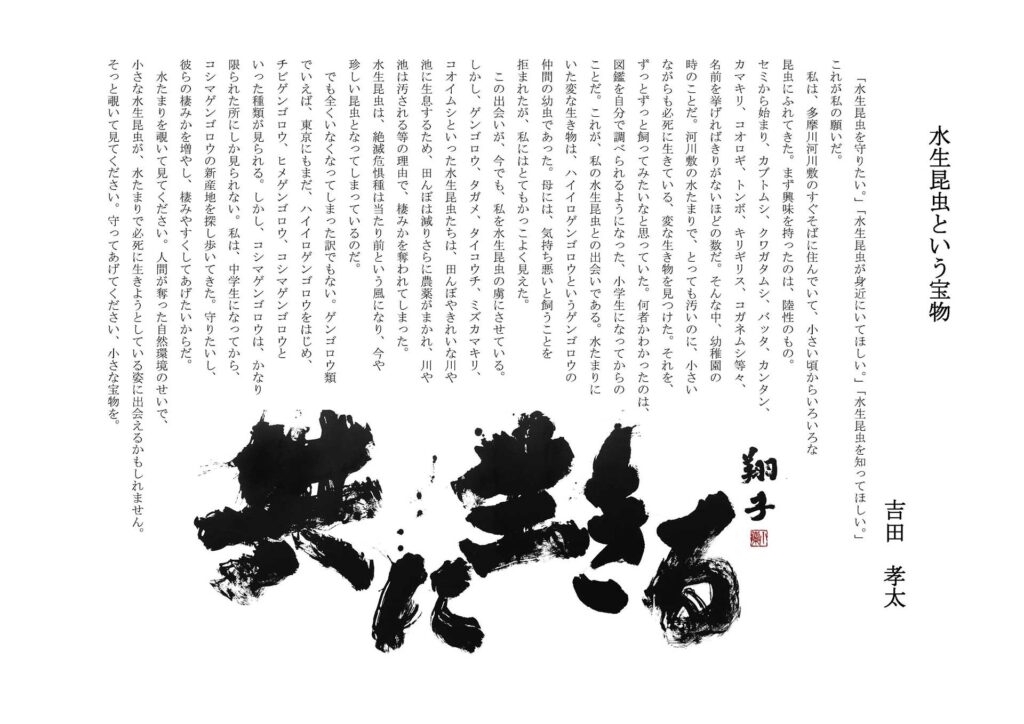 水生昆虫という宝物
吉田 孝太
「水生昆虫を守りたい。」「水生昆虫が身近にいてほしい。」「水生昆虫を知ってほしい。」
これが私の願いだ。
私は、多摩川河川敷のすぐそばに住んでいて、小さい頃からいろいろな
昆虫にふれてきた。まず興味を持ったのは、陸性のもの。
セミから始まり、カブトムシ、クワガタムシ、バッタ、カンタン、
カマキリ、コオロギ、トンボ、キリギリス、コガネムシ等々、
名前を挙げればきりがないほどの数だ。そんな中、幼稚園の
時のことだ。河川敷の水たまりで、とっても汚いのに、小さい
ながらも必死に生きている、変な生き物を見つけた。それを、
ずっとずっと飼ってみたいなと思っていた。何者かわかったのは、
図鑑を自分で調べられるようになった、小学生になってからの
ことだ。これが、私の水生昆虫との出会いである。水たまりに
いた変な生き物は、ハイイロゲンゴロウというゲンゴロウの
仲間の幼虫であった。母には、気持ち悪いと飼うことを
拒まれたが、私にはとてもかっこよく見えた。
この出会いが、今でも、私を水生昆虫の虜にさせている。
しかし、ゲンゴロウ、タガメ、タイコウチ、ミズカマキリ、
コオイムシといった水生昆虫たちは、田んぼやきれいな川や
池に生息するため、田んぼは減りさらに農薬がまかれ、川や
池は汚される等の理由で、棲みかを奪われてしまった。
水生昆虫は、絶滅危惧種は当たり前という風になり、今や
珍しい昆虫となってしまっているのだ。
でも全くいなくなってしまった訳でもない。ゲンゴロウ類
でいえば、東京にもまだ、ハイイロゲンゴロウをはじめ、
チビゲンゴロウ、ヒメゲンゴロウ、コシマゲンゴロウと
いった種類が見られる。しかし、コシマゲンゴロウは、かなり
限られた所にしか見られない。私は、中学生になってから、
コシマゲンゴロウの新産地を探し歩いてきた。守りたいし、
彼らの棲みかを増やし、棲みやすくしてあげたいからだ。
水たまりを覗いて見てください。人間が奪った自然環境のせいで、
小さな水生昆虫が、水たまりで必死に生きようとしている姿に出会えるかもしれません。
そっと覗いて見てください。守ってあげてください、小さな宝物を。
共に生きる
翔子